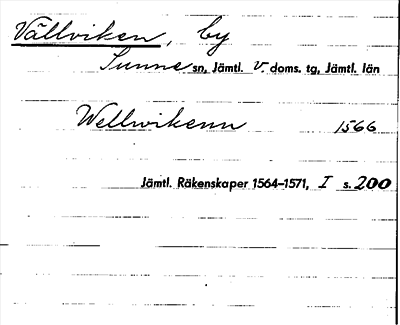 Vällviken, by
Sunne sn, Jämtl. V. doms. tg, Jämtl. län
Wellwikenn 1566
Jämtl. Räkenskaper 1564–1571, I s. 200